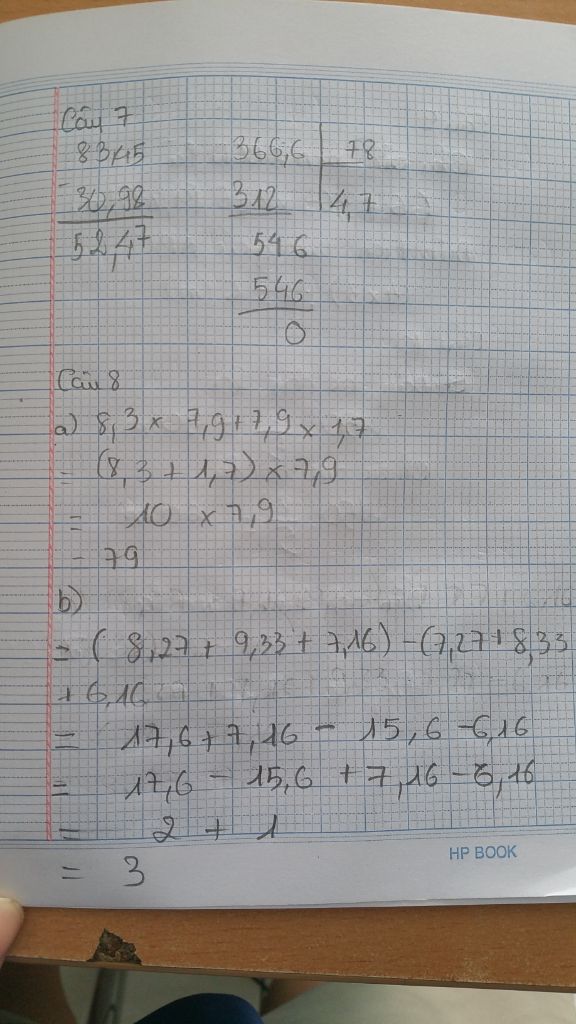 Câu 7
83,45 366,6 78
- 30,98 312 4,7
52,47 546
546
0
Câu 8
a) 8,3 x 7,9 + 7,9 x 1,7
= (8,3 + 1,7) x 7,9
= 10 x 7,9
= 79
b)
= ( 8,27 + 9,33 + 7,16) - (7,27 + 8,33
+ 6,16
= 17,6 + 7,16 - 15,6 - 6,16
= 17,6 - 15,6 + 7,16 - 6,16
= 2 + 1
= 3
HP BOOK